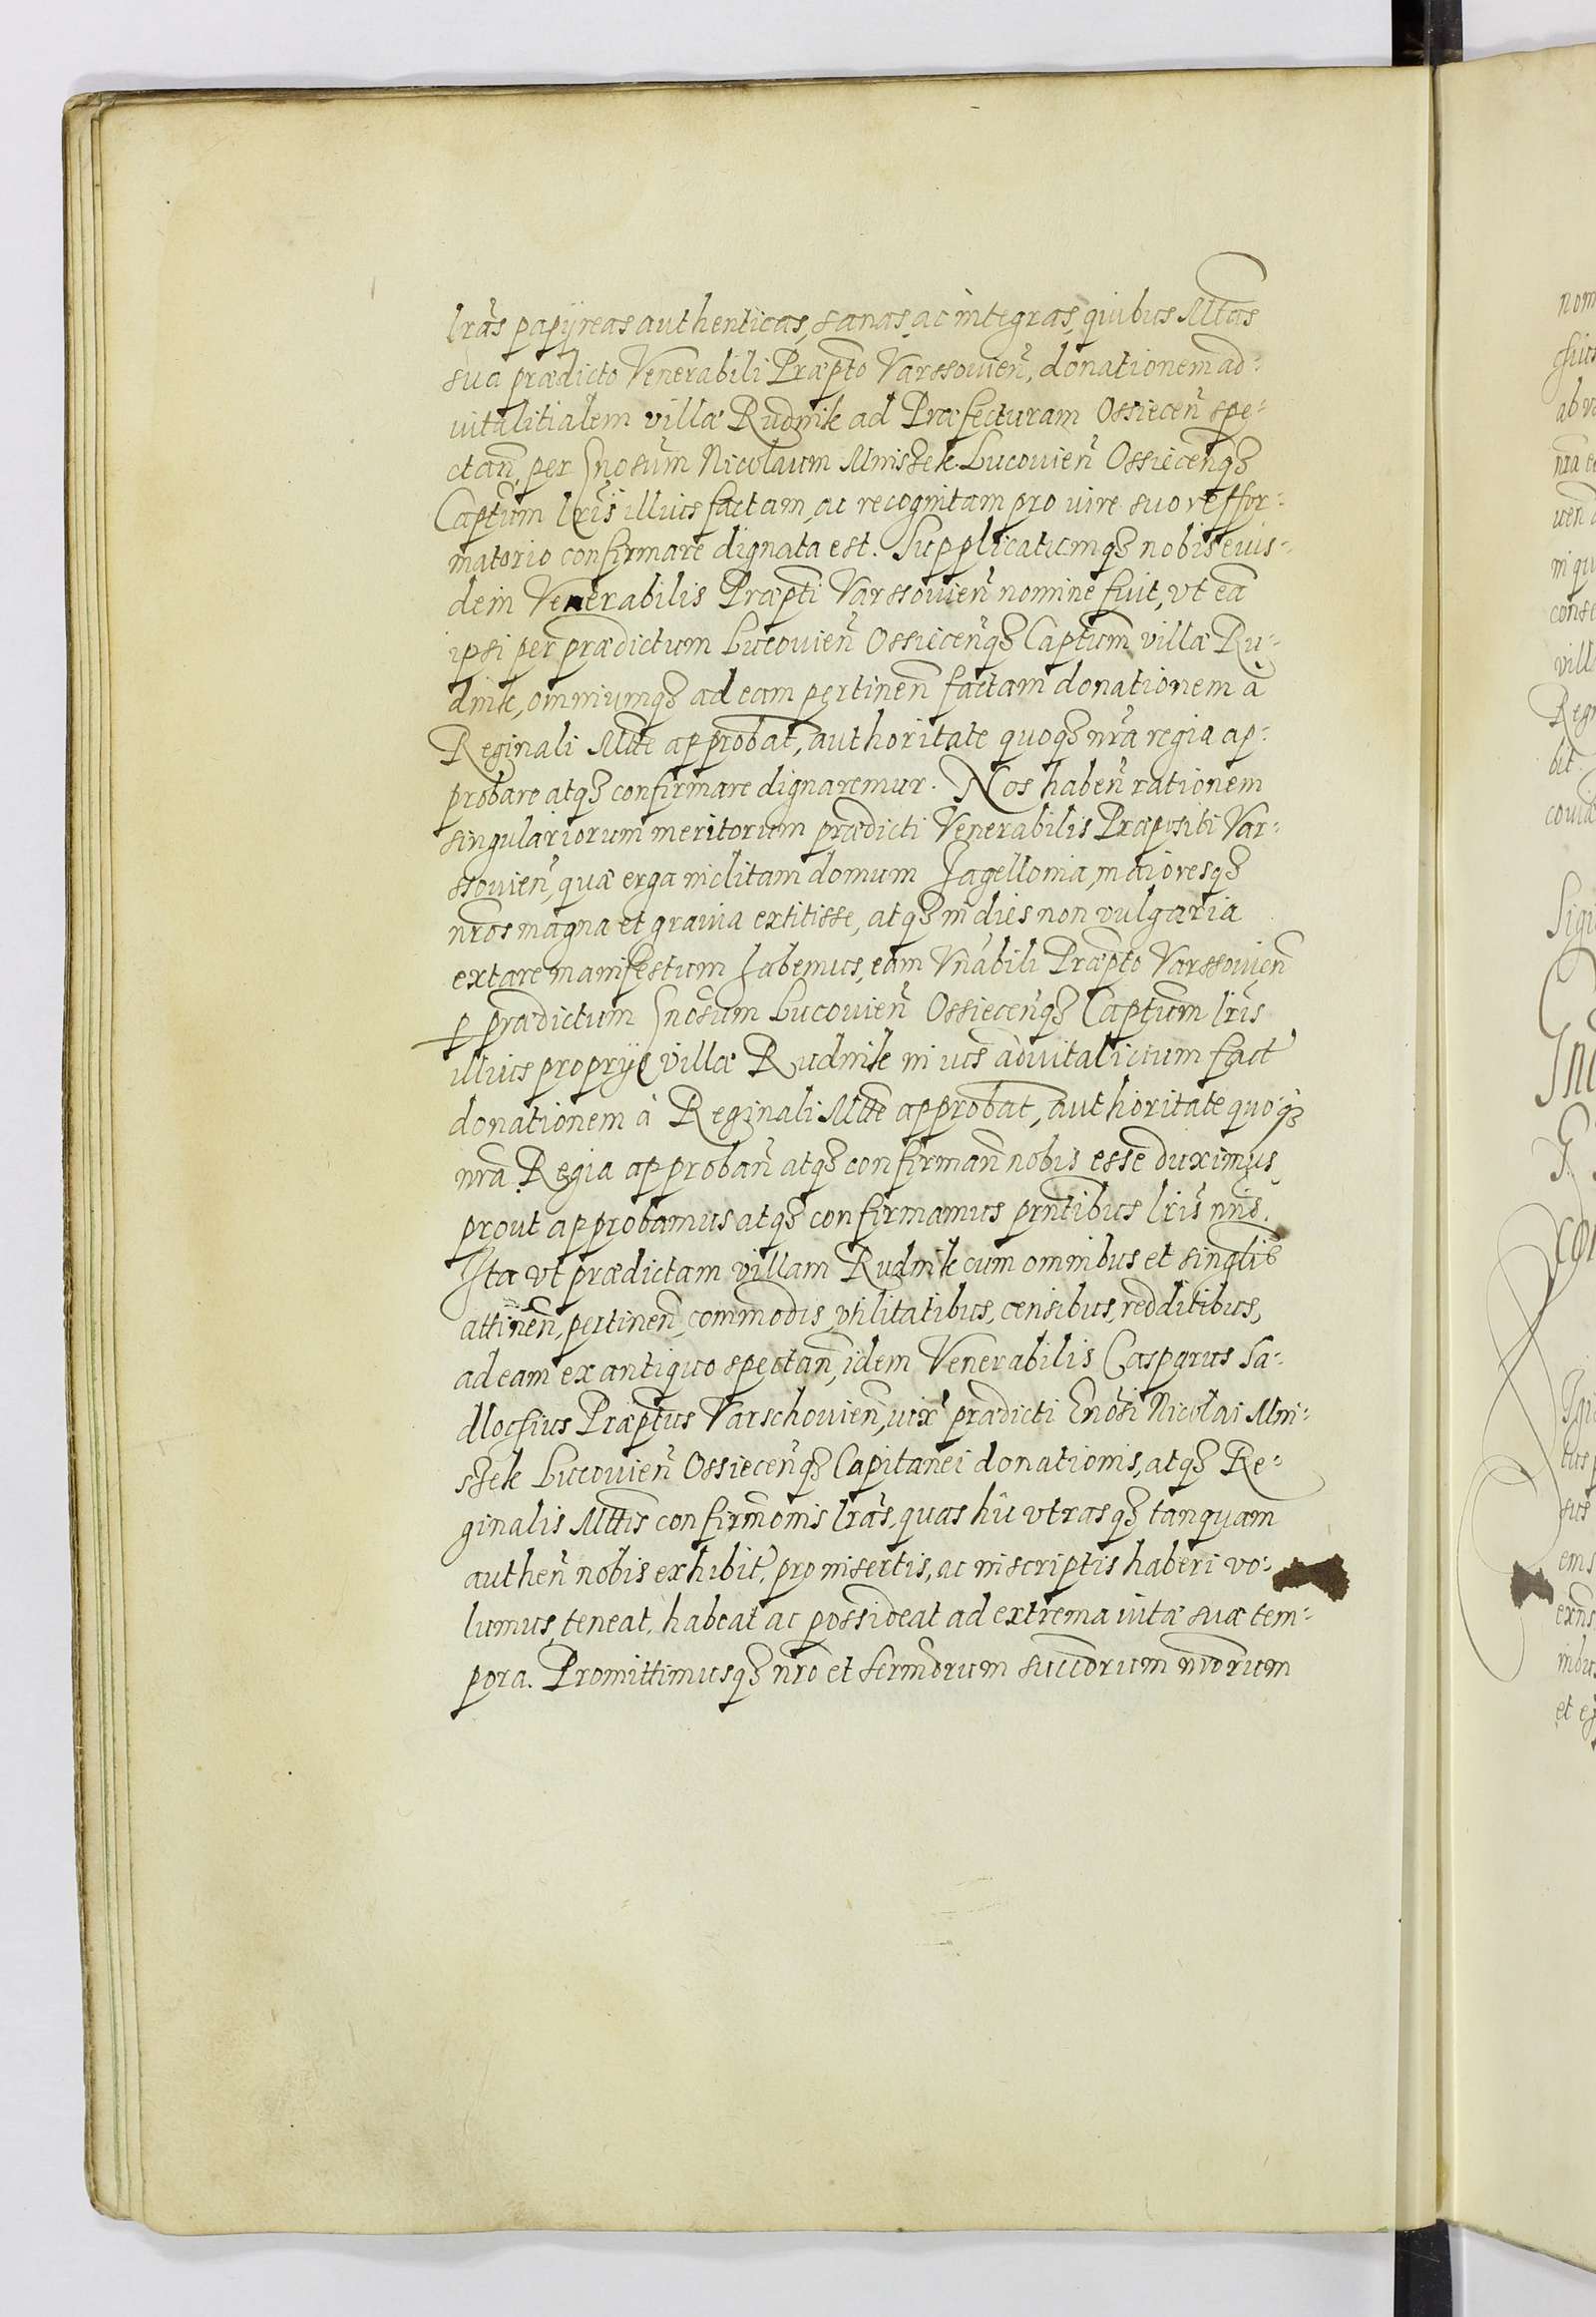 lras papÿreas authenticas, sanas, ac integras, quibus Mtas
sua prædicto Venerabili Præpto Varssouien, donationem ad-
uitalitialem villæ Rudnik ad Præfecturam Ossiecen spe-
ctan, per Gnosum Nicolaum Mniszek Lucouien Ossiecenqꝫ
Captum lris illius factam, ac recognitam pro iure suo reffor-
matorio confirmare dignata est. Supplicatumqꝫ nobis eius-
dem Venerabilis Præpti Varssouien nomine fuit, vt ea
ipsi per prædictum Lucouien Ossiecenqꝫ Captum villæ Ru-
dnik, omniumqꝫ ad eam pertinen factam donationem à
Reginali Mtte approbat, authoritate quoqꝫ nra regia ap-
probare atqꝫ confirmare dignaremur. Nos haben rationem
singulariorum meritorum prædicti Venerabilis Præpositi Var-
ssouien, quæ erga inclitam domum Jagellonia, maioresqꝫ
nros magna et grauia extitisse, atqꝫ in dies non vulgaria
extare manifestum habemus, eam Vnabili Præpto Varssouien
p prædictum Gnosum Lucouien Ossiecenqꝫ Captum lris
illius proprye villæ Rudnik in ius aduitalicium fact
donationem à Reginali Mtte approbat, authoritate quoqꝫ
nra Regia approban atqꝫ confirman nobis esse duximus,
prout approbamus atqꝫ confirmamus pntibus lris nris.
Ita vt prædictam villam Rudnik cum omnibus et singlis
attinen, pertinen, commodis, vtilitatibus, censibus, redditibus,
ad eam ex antiquo spectan, idem Venerabilis Casparus Sa-
dlochius Præptus Varschouien, iux prædicti Gnosi Nicolai Mni-
szek Lucouien Ossiecenqꝫ Capitanei donationis, atqꝫ Re-
ginalis Mttis confirmonis lras, quas hic vtrasqꝫ tanquam
authen nobis exhibit, pro insertis, ac inscriptis haberi vo-
lumus, teneat, habeat ac possideat ad extrema vitæ suæ tem-
pora. Promittimusqꝫ nro et Sermorum succorum nrorum